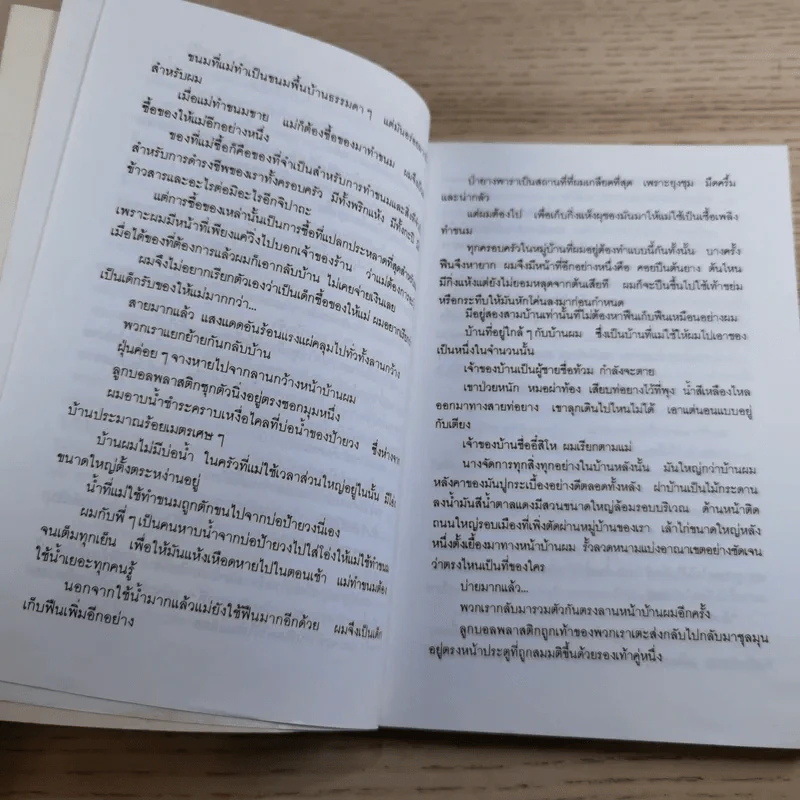 ขนมที่แม่ทำเป็นขนมพื้นบ้านธรรมดาๆ แต่มันอร่อย
สำหรับผม
เมื่อแม่ทำขนมขาย แม่ก็ต้องซื้อของมาทำขนม
ซื้อของให้แม่อีกอย่างหนึ่ง
ของที่แม่ซื้อก็คือของที่จำเป็นสำหรับการทำขนมและ
สำหรับการดำรงชีพของเราทั้งครอบครัว มีทั้งพริกแห้ง มีทั้งกะปิ
ข้าวสารและอะไรต่อมิอะไรอีกจิปาถะ
แต่การซื้อของเหล่านั้นเป็นการซื้อที่แปลกประหลาดที่สุด
เพราะผมมีหน้าที่เพียงแค่วิ่งไปบอกเจ้าของร้าน ว่าแม่ต้องการ
เมื่อได้ของที่ต้องการแล้วผมก็เอากลับบ้าน ไม่เคยจ่ายเงินเลย
ผมจึงไม่อยากเรียกตัวเองว่าเป็นเด็กซื้อของให้แม่ ผมอยาก
เป็นเด็กรับของให้แม่มากกว่า...
สายมากแล้ว แสงแดดอันร้อนแรงแผ่คลุมไปทั่วทั้งลานกว้าง
พวกเราแยกย้ายกันกลับบ้าน
ฝุ่นค่อยๆ จางหายไปจากลานกว้างหน้าบ้านผม
ลูกบอลพลาสติกซุกตัวนิ่งอยู่ตรงซอกมุมหนึ่ง
ผมอาบน้ำชำระคราบเหงื่อไคลที่บ่อน้ำของป้ายวง ซึ่งห่างจาก
บ้านประมาณร้อยเมตรเศษๆ
บ้านผมไม่มีบ่อน้ำ ในครัวที่แม่ใช้เวลาส่วนใหญ่อยู่ในนั้น มีโอ่ง
ขนาดใหญ่ตั้งตระหง่านอยู่
น้ำที่แม่ใช้ทำขนมถูกตักขนไปจากบ่อป้ายวงนี่เอง
ผมกับพี่ๆ เป็นคนหาบน้ำจากบ่อป้ายวงไปใส่โอ่งให้แม่ใช้ทำขนม
จนเต็มทุกเย็น เพื่อให้มันแห้งเหือดหายไปในตอนเช้า แม่ทำขนมต้อง
ใช้น้ำเยอะทุกคนรู้
นอกจากใช้น้ำมากแล้วแม่ยังใช้ฟืนมากอีกด้วย ผมจึงเป็นเด็ก
เก็บฟืนเพิ่มอีกอย่าง
ป่ายางพาราเป็นสถานที่ที่ผมเกลียดที่สุด เพราะยุงชุม มืดครึ้ม
และน่ากลัว
แต่ผมต้องไป เพื่อเก็บกิ่งแห้งผุของมันมาให้แม่ใช้เป็นเชื้อเพลิง
ทำขนม
ทุกครอบครัวในหมู่บ้านที่ผมอยู่ต้องทำแบบนี้กันทั้งนั้น บางครั้ง
ฟืนจึงหายาก ผมจึงมีหน้าที่อีกอย่างหนึ่งคือ คอยปีนต้นยาง ต้นไหน
มีกิ่งแห้งแต่ยังไม่ยอมหลุดจากต้นเสียที ผมก็จะปีนขึ้นไปใช้เท้าขย่ม
หรือกระทืบให้มันหักโค่นลงมาก่อนกำหนด
มีอยู่สองสามบ้านเท่านั้นที่ไม่ต้องหาฟืนเก็บฟืนเหมือนอย่างผม
บ้านที่อยู่ใกล้ๆ กับบ้านผม ซึ่งเป็นบ้านที่แม่ใช้ให้ผมไปเอาของ
เป็นหนึ่งในจำนวนนั้น
เจ้าของบ้านเป็นผู้ชายชื่อท้วม กำลังจะตาย
เขาป่วยหนัก หมอผ่าท้อง เสียบท่อยางไว้ที่พุง น้ำสีเหลืองไหล
ออกมาทางสายท่อยาง เขาลุกเดินไปไหนไม่ได้ เอาแต่นอนแบบอยู่
กับเตียง
เจ้าของบ้านชื่ออี่สิโห ผมเรียกตามแม่
นางจัดการทุกสิ่งทุกอย่างในบ้านหลังนั้น มันใหญ่กว่าบ้านผม
หลังคาของมันปูกระเบื้องอย่างดีตลอดทั้งหลัง ฝาบ้านเป็นไม้กระดาน
ลงน้ำมันสีน้ำตาลแดงมีสวนขนาดใหญ่ล้อมรอบบริเวณ ด้านหน้าติด
ถนนใหญ่รอบเมืองที่เพิ่งตัดผ่านหมู่บ้านของเรา เล้าไก่ขนาดใหญ่หลัง
หนึ่งตั้งเยื้องมาทางหน้าบ้านผม รั้วลวดหนามแบ่งอาณาเขตอย่างชัดเจน
ว่าตรงไหนเป็นที่ของใคร
บ่ายมากแล้ว...
พวกเรากลับมารวมตัวกันตรงลานหน้าบ้านผมอีกครั้ง
ลูกบอลพลาสติกถูกเท้าของพวกเราเตะส่งกลับไปกลับมาชุลมุน
อยู่ตรงหน้าประตูที่ถูกสมมติขึ้นด้วยรองเท้าคู่หนึ่ง